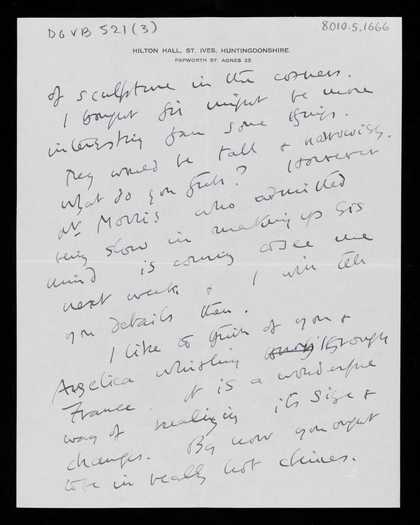 DGVB 521(3)
8010.5.1666
HILTON HALL, ST. IVES, HUNTINGDONSHIRE.
PAPWORTH ST. AGNES 22
of sculpture in the corners.
I thought this might be more
interesting than some things.
They would be tall & narrowish.
What do you think? However
Mr Morris who admitted
being slow in making up his
mind is coming to see me
next week & I will tell
you details then.
I like to think of you &
Angelica whistling through
France. It is a wonderful
way of realizing its size &
changes. By now you ought
to be in really hot climes.